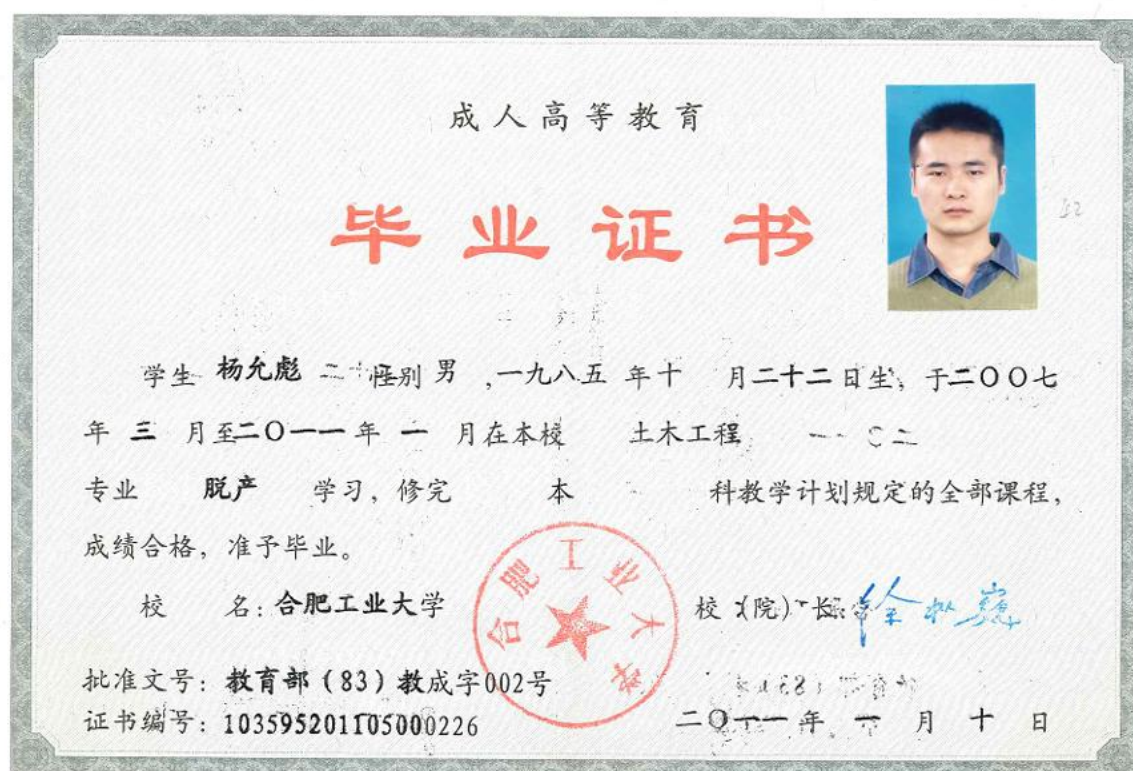 成人高等教育
毕业证书
学生 杨允彪 性别 男 ,一九八五 年十 月二十二日生, 于二〇〇七
年 三 月至二〇一一年 一 月在本校 土木工程
专业 脱产 学习, 修完 本 科教学计划规定的全部课程,
成绩合格, 准予毕业。
合肥工业大学
校 名: 合肥工业大学 校 (院) 长
批准文号: 教育部 (83) 教成字002号
证书编号: 103595201105000226 二〇一一 年 一 月 十 日